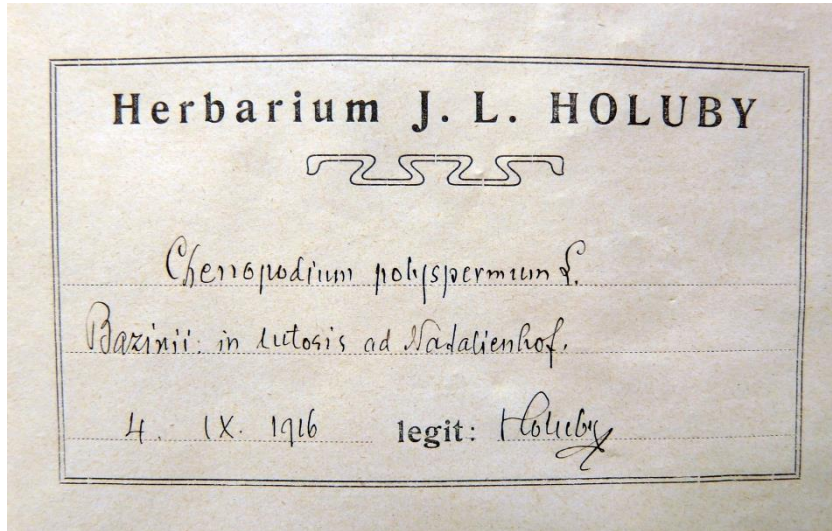 Herbarium J. L. HOLUBY
Chenopodium polyspermum L.
Bazinii: in lutosis ad Nadalienhof.
4. IX. 1916 legit: Holuby